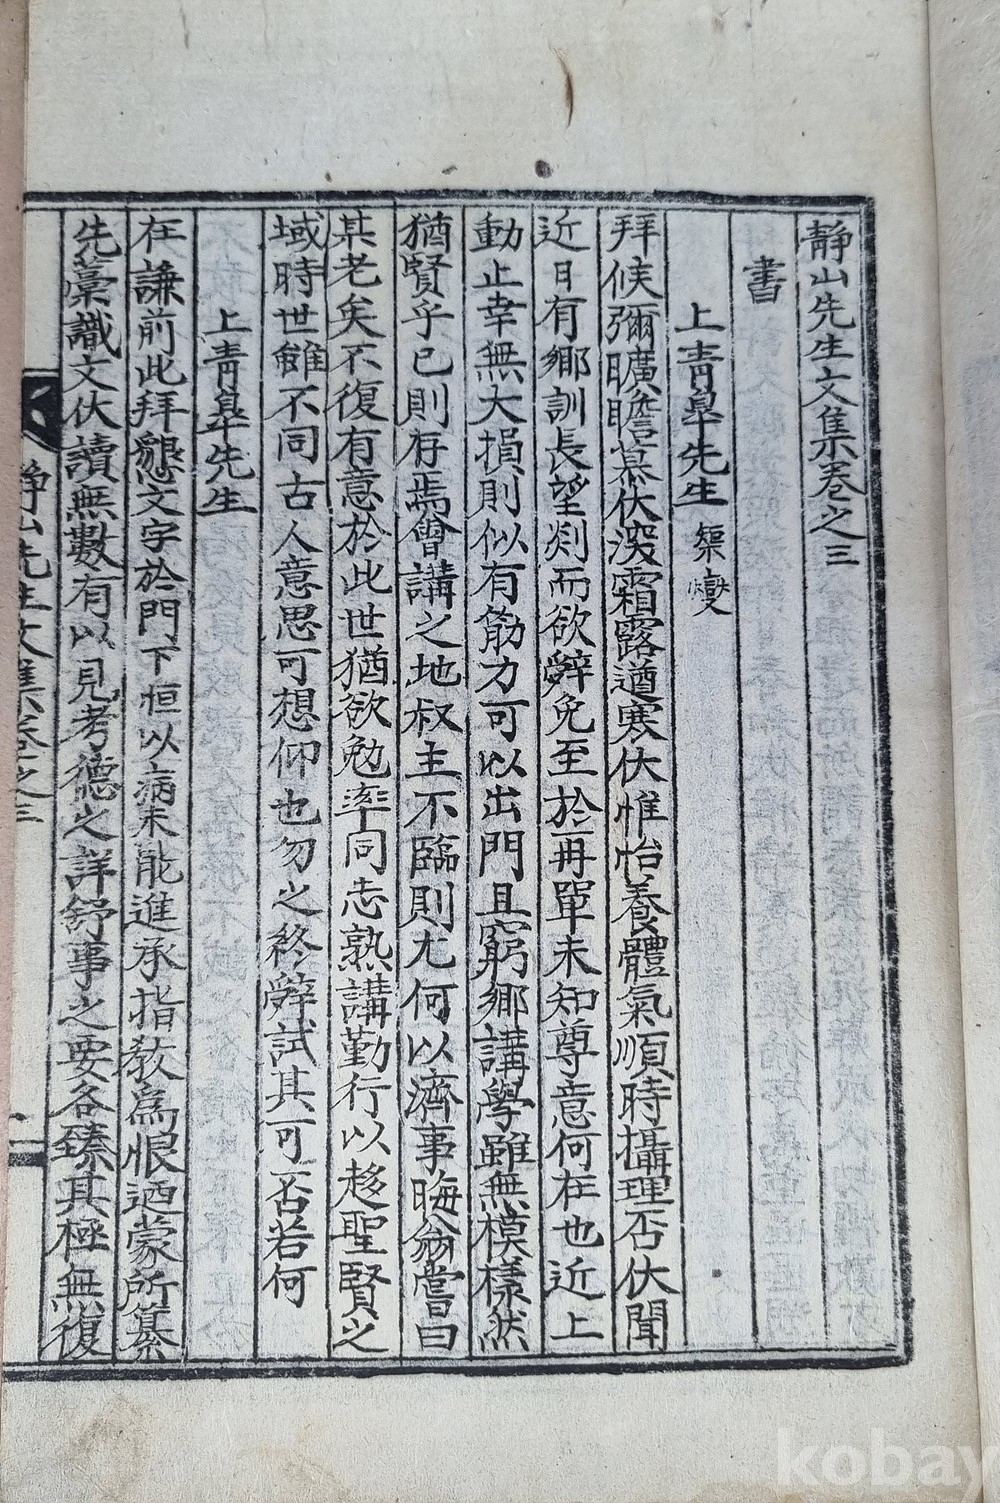 靜山先生文集卷之三
書
上靑皐先生
拜候彌曠瞻慕伏深霜露遒寒伏惟怡養體氣順時攝理否伏聞
近日有鄕訓長望剡而欲辭免至於再單未知尊意何在也近上
動止幸無大損則似有筋力可以出門且窮鄕講學雖無模樣然
猶賢乎已則存焉會講之地叔主不臨則尤何以濟事晦翁嘗曰
某老矣不復有意於此世猶欲勉率同志熟講勤行以趍聖賢之
域時世雖不同古人意思可想仰也勿之終辭試其可否若何
上靑皐先生
在謙前此拜懇文字於門下恒以病未能進承指敎爲恨迺蒙所纂
先藁識文伏讀無數有以見考德之詳舒事之要各臻其極無復
靜山先生文集卷之三
kobay